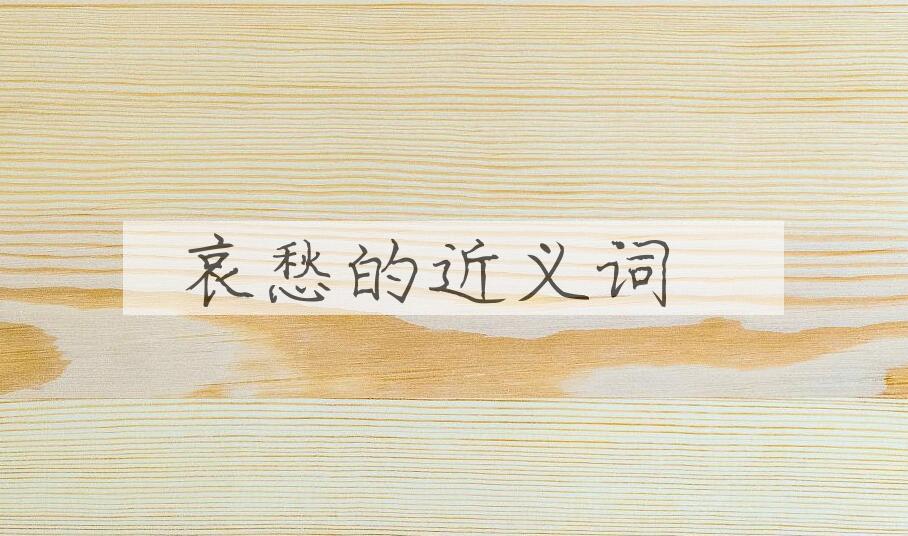 哀愁的近义词